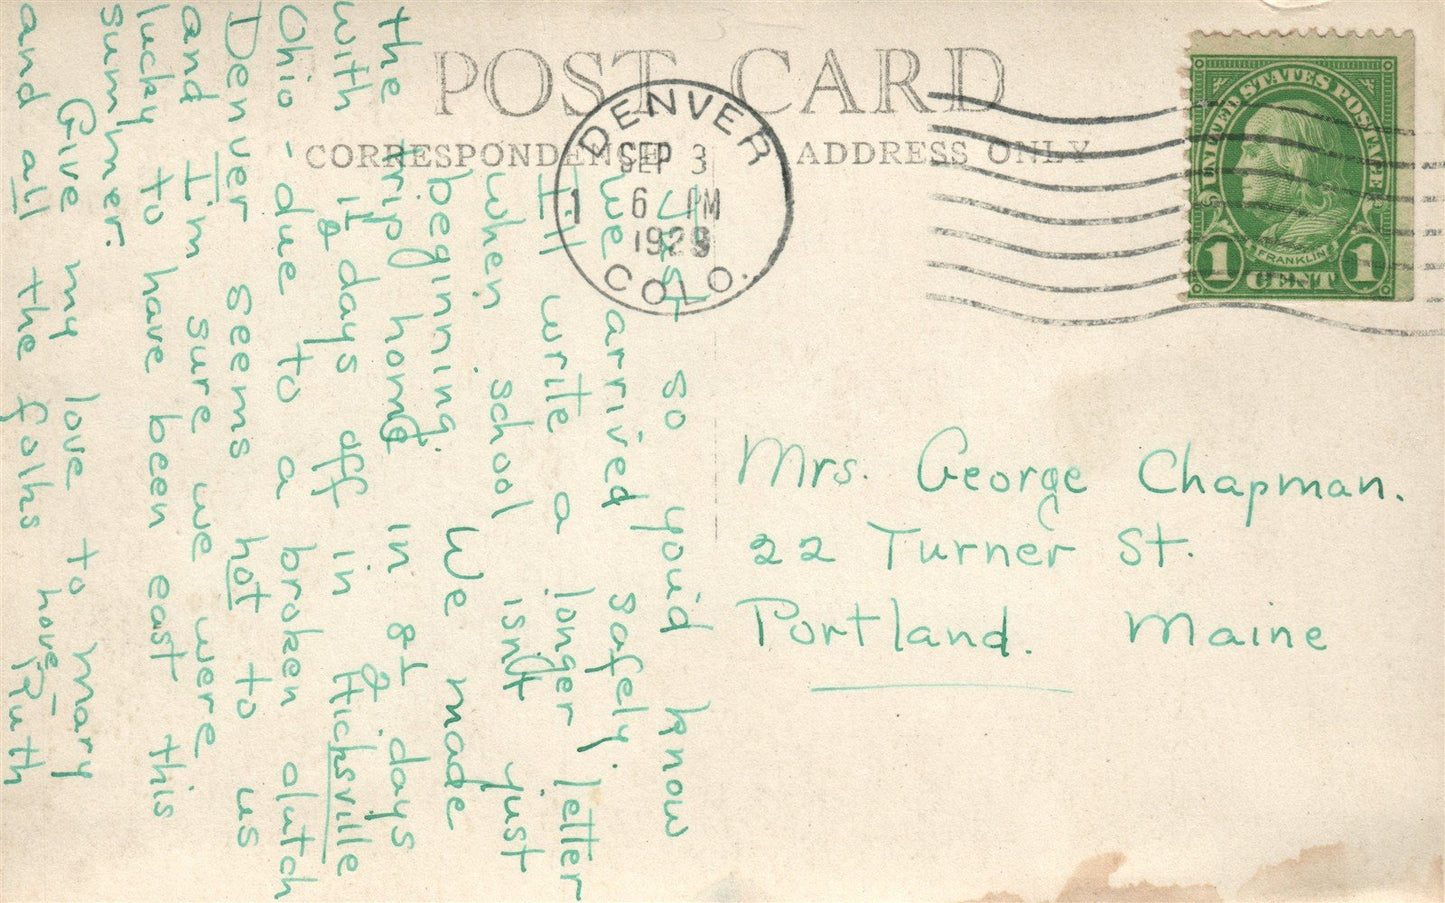 POST CARD
CORRESPONDENCE
ADDRESS ONLY
DENVER
SEP 3
6 PM
1929
COLO.
1
UNITED STATES POSTAGE
FRANKLIN
1 CENT 1
Just so you'd know
we arrived safely.
I'll write a longer letter
when school isn't just
beginning. We made
the trip home in 8½ days
with 1½ days off in Hicksville
Ohio - due to a broken clutch
Denver seems hot to us
and I'm sure we were
lucky to have been east this
summer.
Give my love to Mary
and all the folks
Love - Ruth
Mrs. George Chapman.
22 Turner St.
Portland. Maine